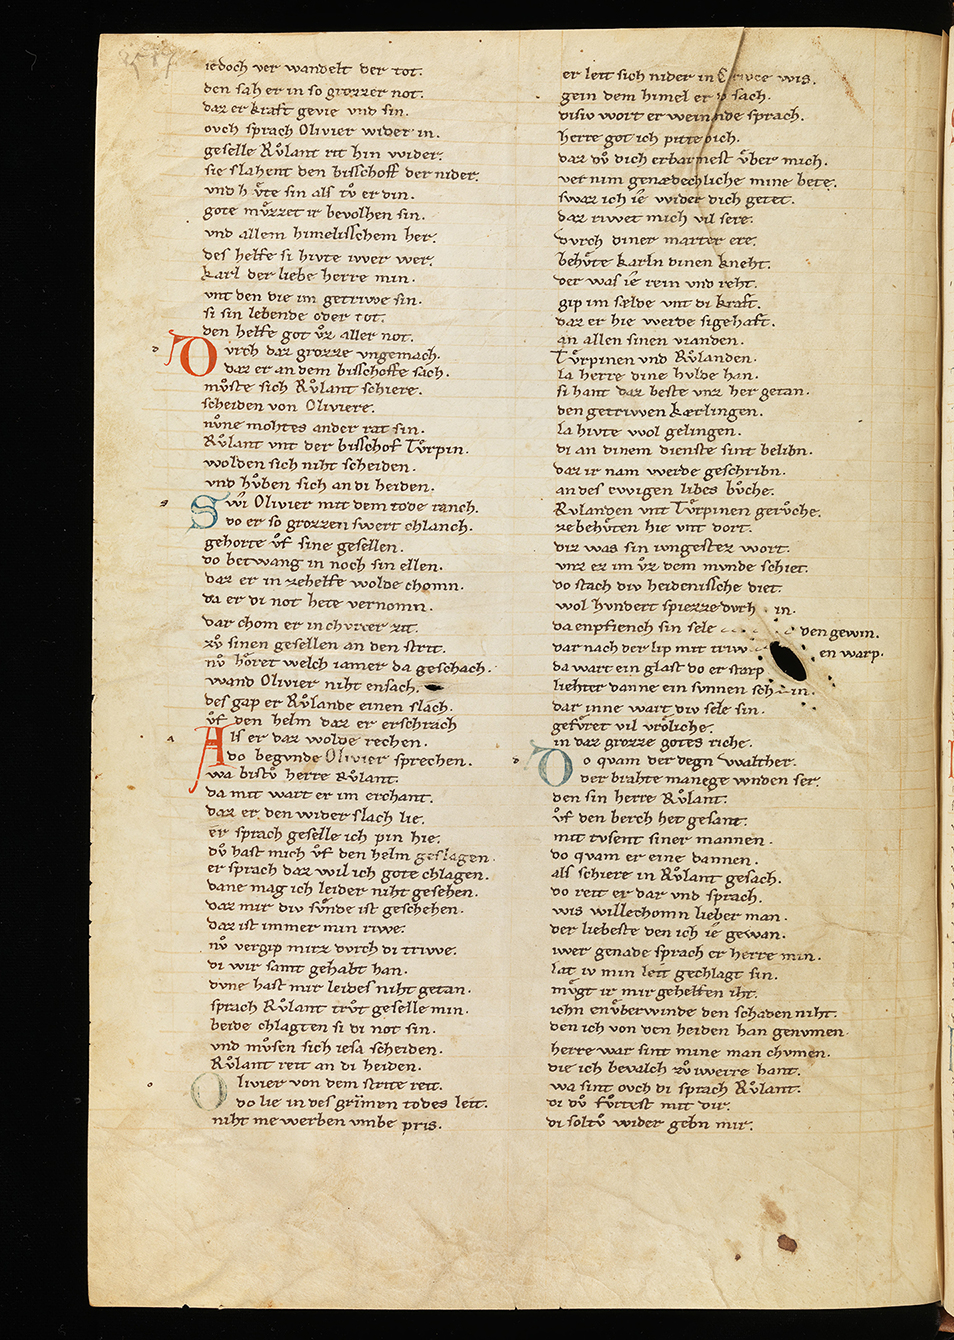 iedoch ver wandelt der tot.
den sah er in so grozzer not.
daz er kraft gevie vnd sin.
ovch sprach Olivier wider in.
geselle Rvͦlant rit hin wider.
sie slahent den bisschoff der nider.
vnd hvͤte sin als tvͦ er din.
gote mvͤzzet ir bevolhen sin.
vnd allem himelisschem her.
des helfe si hivte iwer wer.
karl der liebe herre min.
vnt den die im getriwe sin.
si sin lebende oder tot.
den helfe got vͦz aller not.
Dvrch daz grozze vngemach.
daz er an dem bisschoffe sach.
mvͦste sich Rvͦlant schiere.
scheiden von Oliviere.
nvͦne mohtes ander rat sin.
Rvͦlant vnt der bisschof Tvͦrpin.
wolden sich niht scheiden.
vnd hvͦben sich an di heiden.
Swi Olivier mit dem tode ranch.
do er so grozzen swert chlanch.
gehorte vͦf sine gesellen.
do betwang in noch sin ellen.
daz er in zehelfe wolde chomn.
da er di not hete vernomn.
dar chom er in chvrcer zit.
zvͦ sinen gesellen an den strit.
nvͦ hoͤret welch iamer da geschach.
wand Olivier niht ensach.
des gap er Rvͦlande einen slach.
vͦf den helm daz er erschrach
Als er daz wolde rechen.
do begvnde Olivier sprechen.
wa bistv herre Rvͦlant.
da mit wart er im erchant.
daz er den wider slach lie.
er sprach geselle ich pin hie.
dvͦ hast mich vͦf den helm geslagen.
er sprach daz wil ich gote chlagen.
dane mag ich leider niht gesehen.
daz mir div svͤnde ist geschehen.
daz ist immer min riwe.
nvͦ vergip mirz dvrch di triwe.
di wir samt gehabt han.
dvne hast mir leides niht getan.
sprach Rvͦlant trvͦt geselle min.
beide chlagten si di not sin.
vnd mvͦsen sich iesa scheiden.
Rvͦlant reit an di heiden.
Olivier von dem strite reit.
do lie in des grimen todes leit.
niht me werben vmbe pris.
er leit sich nider in Criuce wis.
gein dem himel er vͦ sach.
disiv wort er weinnde sprach.
herre got ich pitte dich.
daz dvͦ dich erbarmest vͤber mich.
vernim genædechliche mine bete.
swaz ich ie wider dich getet.
daz riwet mich vil sere.
dvrch diner marter ere.
behvͤte karln dinen kneht.
der was ie rein vnd reht.
gip im sælde vnt di kraft.
daz er hie werde sigehaft.
an allen sinen vianden.
Tvͦrpinen vnd Rvͦlanden.
la herre dine hvlde han.
si hant daz beste vnz her getan.
den getriwen kærlingen.
la hivte wol gelingen.
di an dinem dienste sint belibn.
daz ir nam werde geschribn.
an des ewigen libes bvͦche.
Rvlanden vnt Tvͦrpinen gervͦche.
zebehvͤten hie vnt dort.
diz was sin ivngestez wort.
vnz er im vͦz dem mvnde schiet.
do stach div heidenissche diet.
wol hvndert spiezze dvrh in.
da enpfiench sin sele den gewin.
dar nach der lip mit triw en warp.
da wart ein glast do er starp
liehter danne ein svnnen schin.
dar inne wart div sele sin.
gefvͤret vil vrͦliche.
in daz grozze gotes riche.
Do quam der degn walther.
der brahte manege wnden ser.
den sin herre Rvͦlant.
vͦf den berch het gesant.
mit tvsent siner mannen.
do quam er eine dannen.
als schiere in Rvͦlant gesach.
do reit er dar vnd sprach.
wis willechomn lieber man.
der liebeste den ich ie gewan.
iwer genade sprach er herre min.
lat iv min leit gechlagt sin.
mvͤgt ir mir gehelfen iht.
ichn envͤberwinde den schaden niht.
den ich von den heiden han genvmen.
herre war sint mine man chvmen.
die ich bevalch zvͦ iwerre hant.
wa sint ovch di sprach Rvͦlant.
di dvͦ fvͦrtest mit dir.
di soltv wider gebn mir.